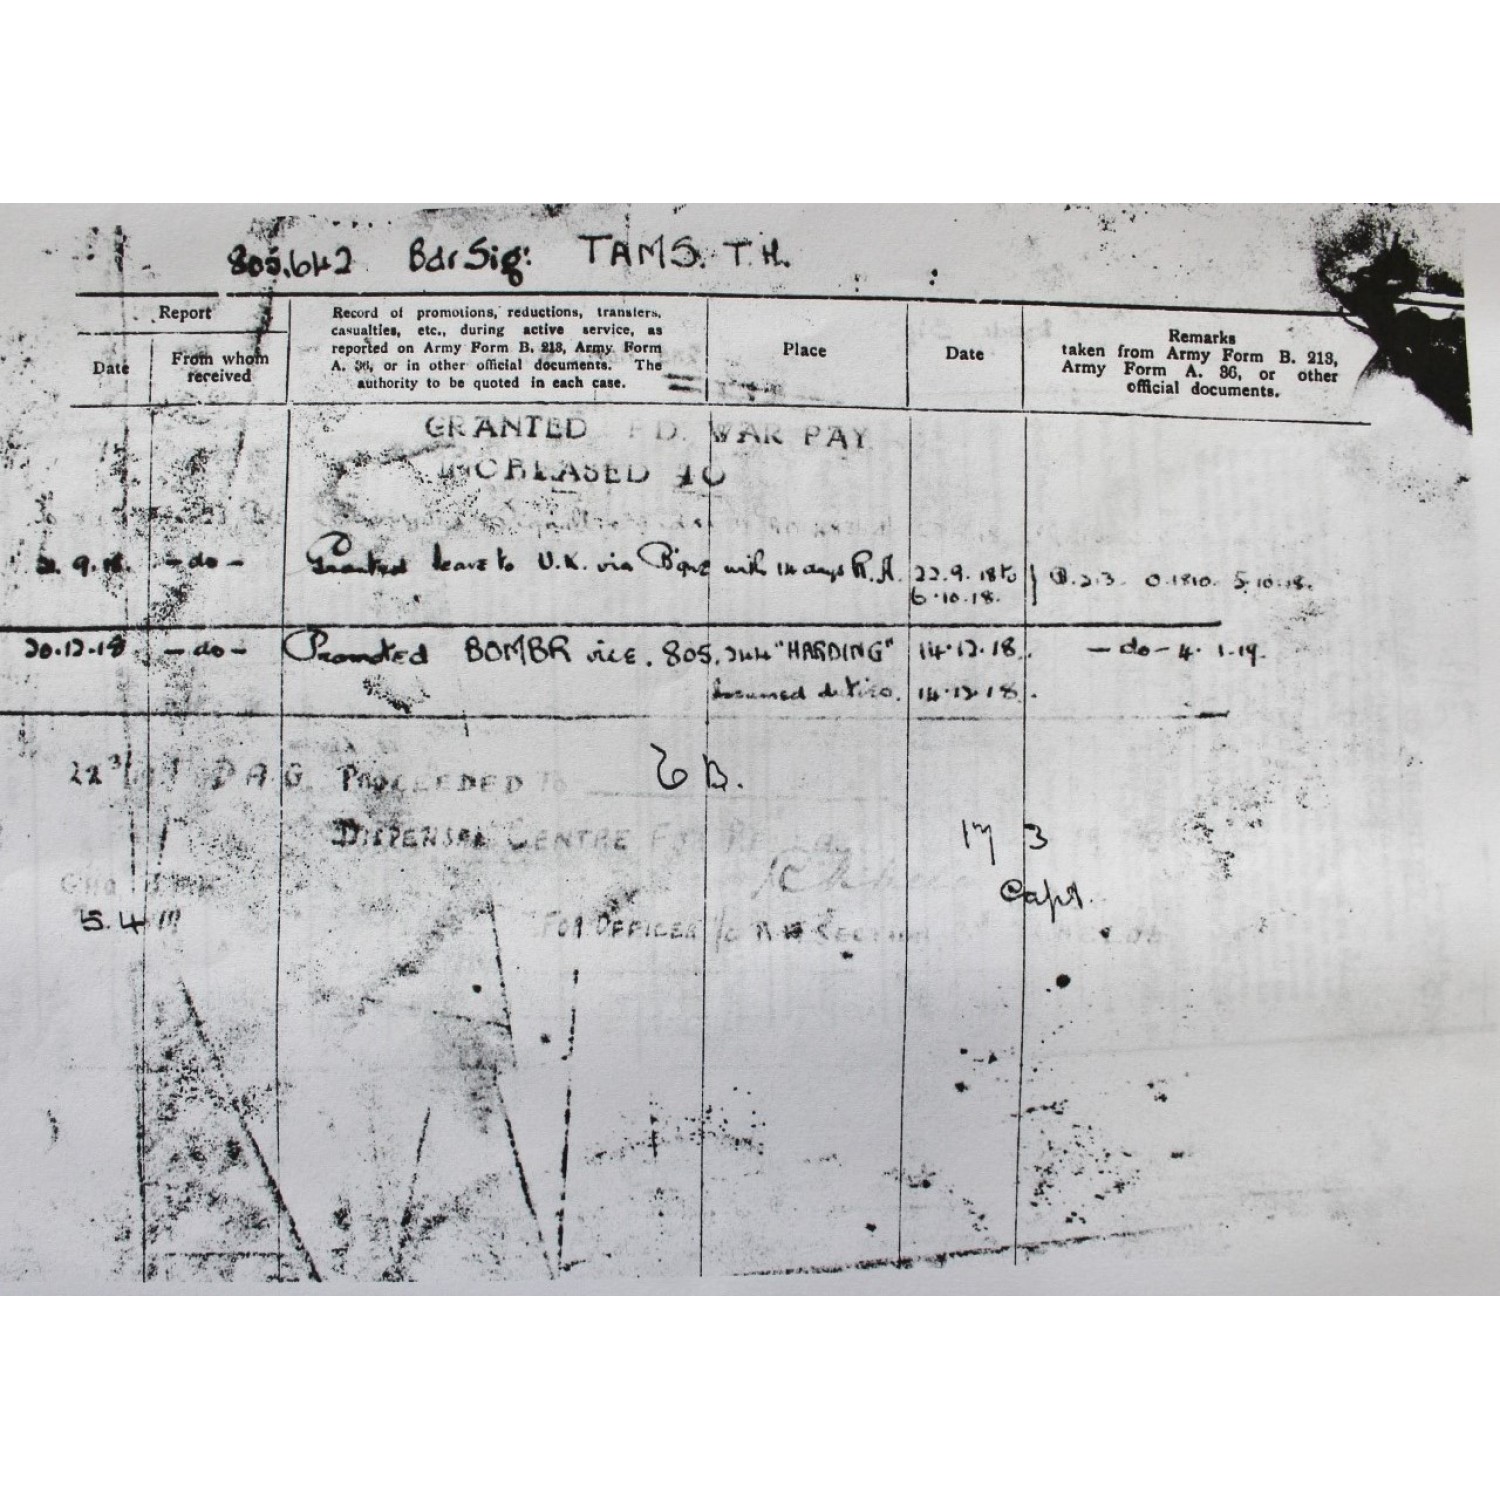 805.642 Bdr Sig: TAMS. T.H.
Report
Date
From whom
received
Record of promotions, reductions, transfers,
casualties, etc., during active service, as
reported on Army Form B. 213, Army Form
A. 36, or in other official documents. The
authority to be quoted in each case.
Place
Date
Remarks
taken from Army Form B. 213,
Army Form A. 36, or other
official documents.
GRANTED PD. WAR PAY
INCREASED TO
9.18. - do - Granted leave to U.K. via with 14 days R.A. 22.9.18 to
6.10.18. B.213 O.1810. 5.10.18.
20.12.18 - do - Promoted BOMBR vice. 805.244 "HARDING" 14.12.18. - do - 4.1.19.
Assumed duties. 14.12.18.
22 3 D A G. PROCEEDED TO B.
DISPERSAL CENTRE FOR 17 3
Capt.
5.4
FOR OFFICER I/C SECTION